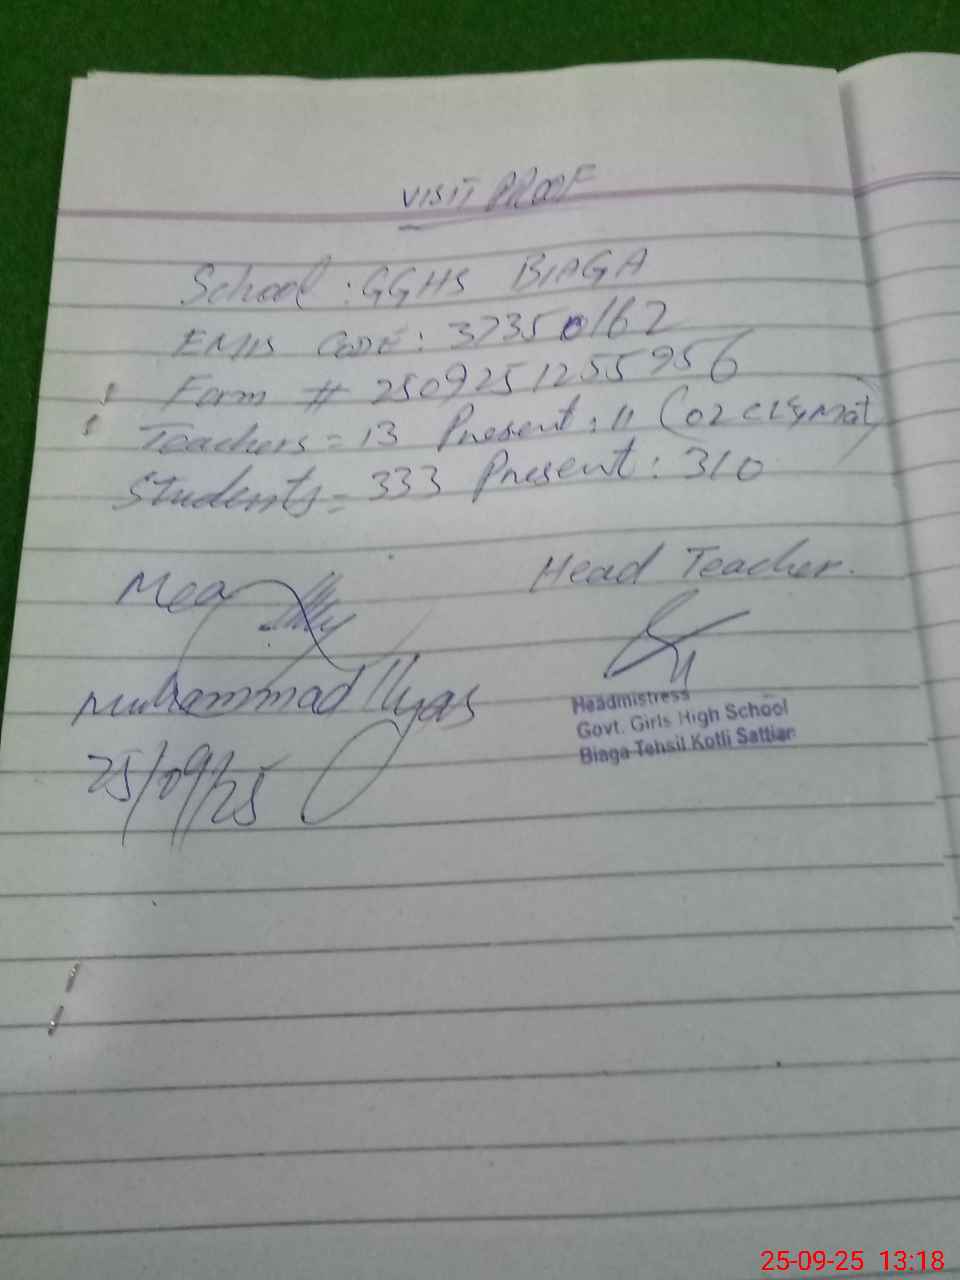 VISIT PROOF
School : GGHS BIAGA
EMIS CODE : 37350162
Form # 2509251255956
Teachers = 13 Present : 11 (02 CL &
Students = 333 Present : 310
Mea
Head Teacher.
Muhammad Ilyas
25/09/25
Headmistress
Govt. Girls High School
Biaga Tehsil Kotli Sattian
25-09-25 13:18